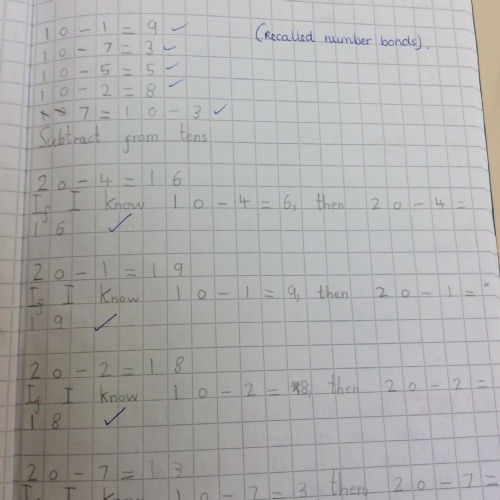 10-1=9
(Recalled number bonds).
10-7=3
10-5=5
10-2=8
7=10-3
Subtract from tens
20-4=16
If I know 10-4=6, then 20-4=
16
20-1=19
If I know 10-1=9, then 20-1=
19
20-2=18
If I know 10-2=8, then 20-2=
18
20-7=13
If I know 10-7=3 then 20-7=